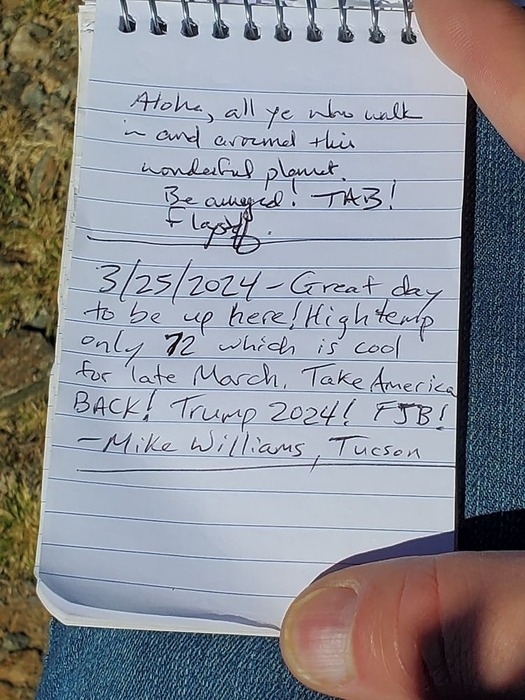 Aloha, all ye who walk
in and around this
wonderful planet.
Be amazed! TAB!
3/25/2024 - Great day
to be up here! High temp
only 72 which is cool
for late March. Take America
BACK! Trump 2024! FJB!
- Mike Williams, Tucson